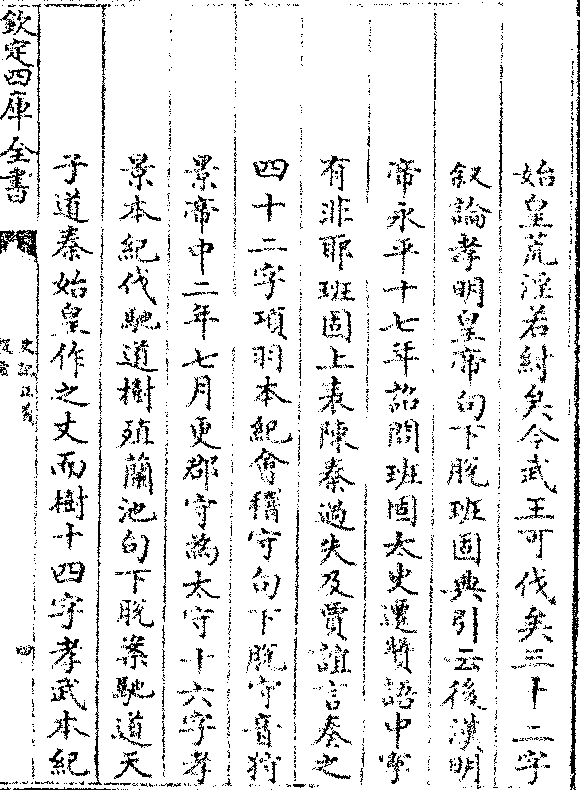 始皇荒淫若紂矣今武王可伐矣三十二字
叙論孝明皇帝句下脫班固典引云後漢明
帝永平十七年詔問班固太史遷贊語中寧
有非耶班固上表陳秦過失及賈誼言奏之
四十二字項羽本紀會稽守句下脫守音狩
景帝中二年七月更郡守為太守十六字孝
景本紀伐馳道樹殖蘭池句下脫案馳道天
子道秦始皇作之丈而樹十四字孝武本紀
欽定四庫全書
史記正義
提要
四